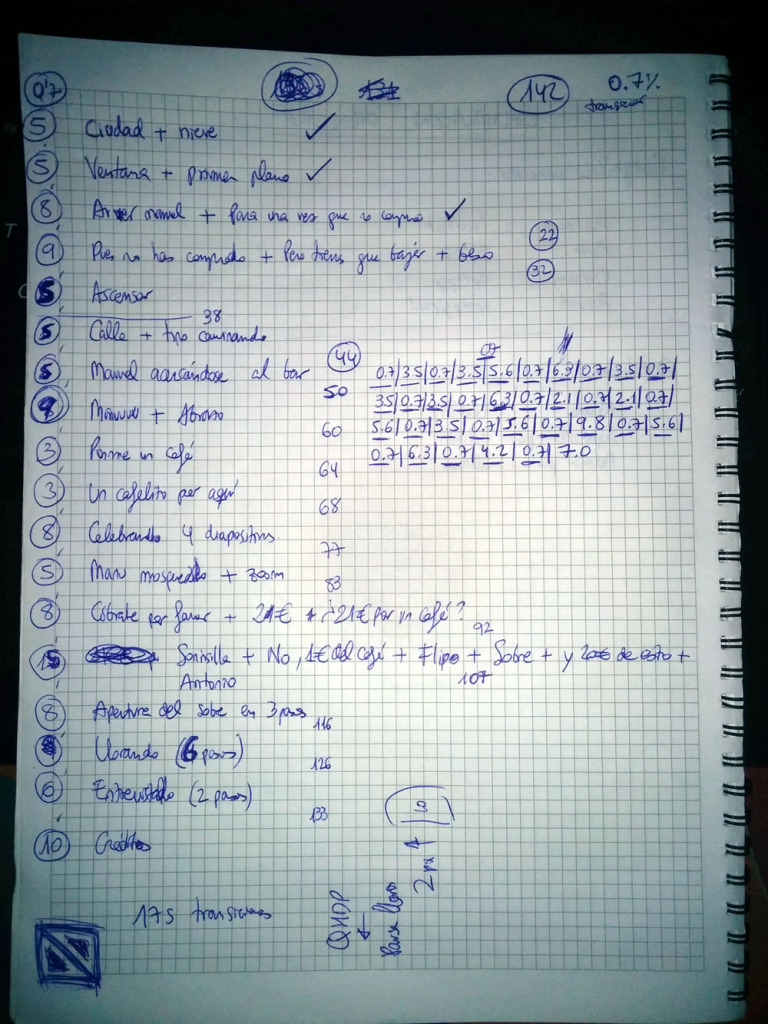 0'7 142 0.7%
5 Ciudad + nieve ✓
5 Ventana + primer plano ✓
8 + Para una vez que no compro ✓
9 Pues no has comprado + Pero tienes que bajar + beso 22
32
5 Ascensor
38
5 Calle + tipo caminando
44
5 Manuel acercándose al bar 50
9 Manuuu + Abrazo 60
3 Ponme un café 64
3 Un cafelito por aquí 68
8 Celebrando 4 diapositivas 77
5 Manu mosqueado + zoom 83
8 Cóbrate por favor + 21€ + ¿21€ por un café? 92
15 Sonrisilla + No, 1€ del café + Flipo + Sobre + y 20€ de esto +
Antonio 107
8 Apertura del sobre en 3 pasos 116
Llorando (6 pasos) 126
6 Entrevistado (2 pasos) 133
10 Créditos
17s transiciones
0.7|3.5|0.7|3.5|5.6|0.7|6.3|0.7|3.5|0.7|
0.7
3.5|0.7|3.5|0.7|6.3|0.7|2.1|0.7|2.1|0.7|
5.6|0.7|3.5|0.7|5.6|0.7|9.8|0.7|5.6|
0.7|6.3|0.7|4.2|0.7|7.0
9
QHDP ←